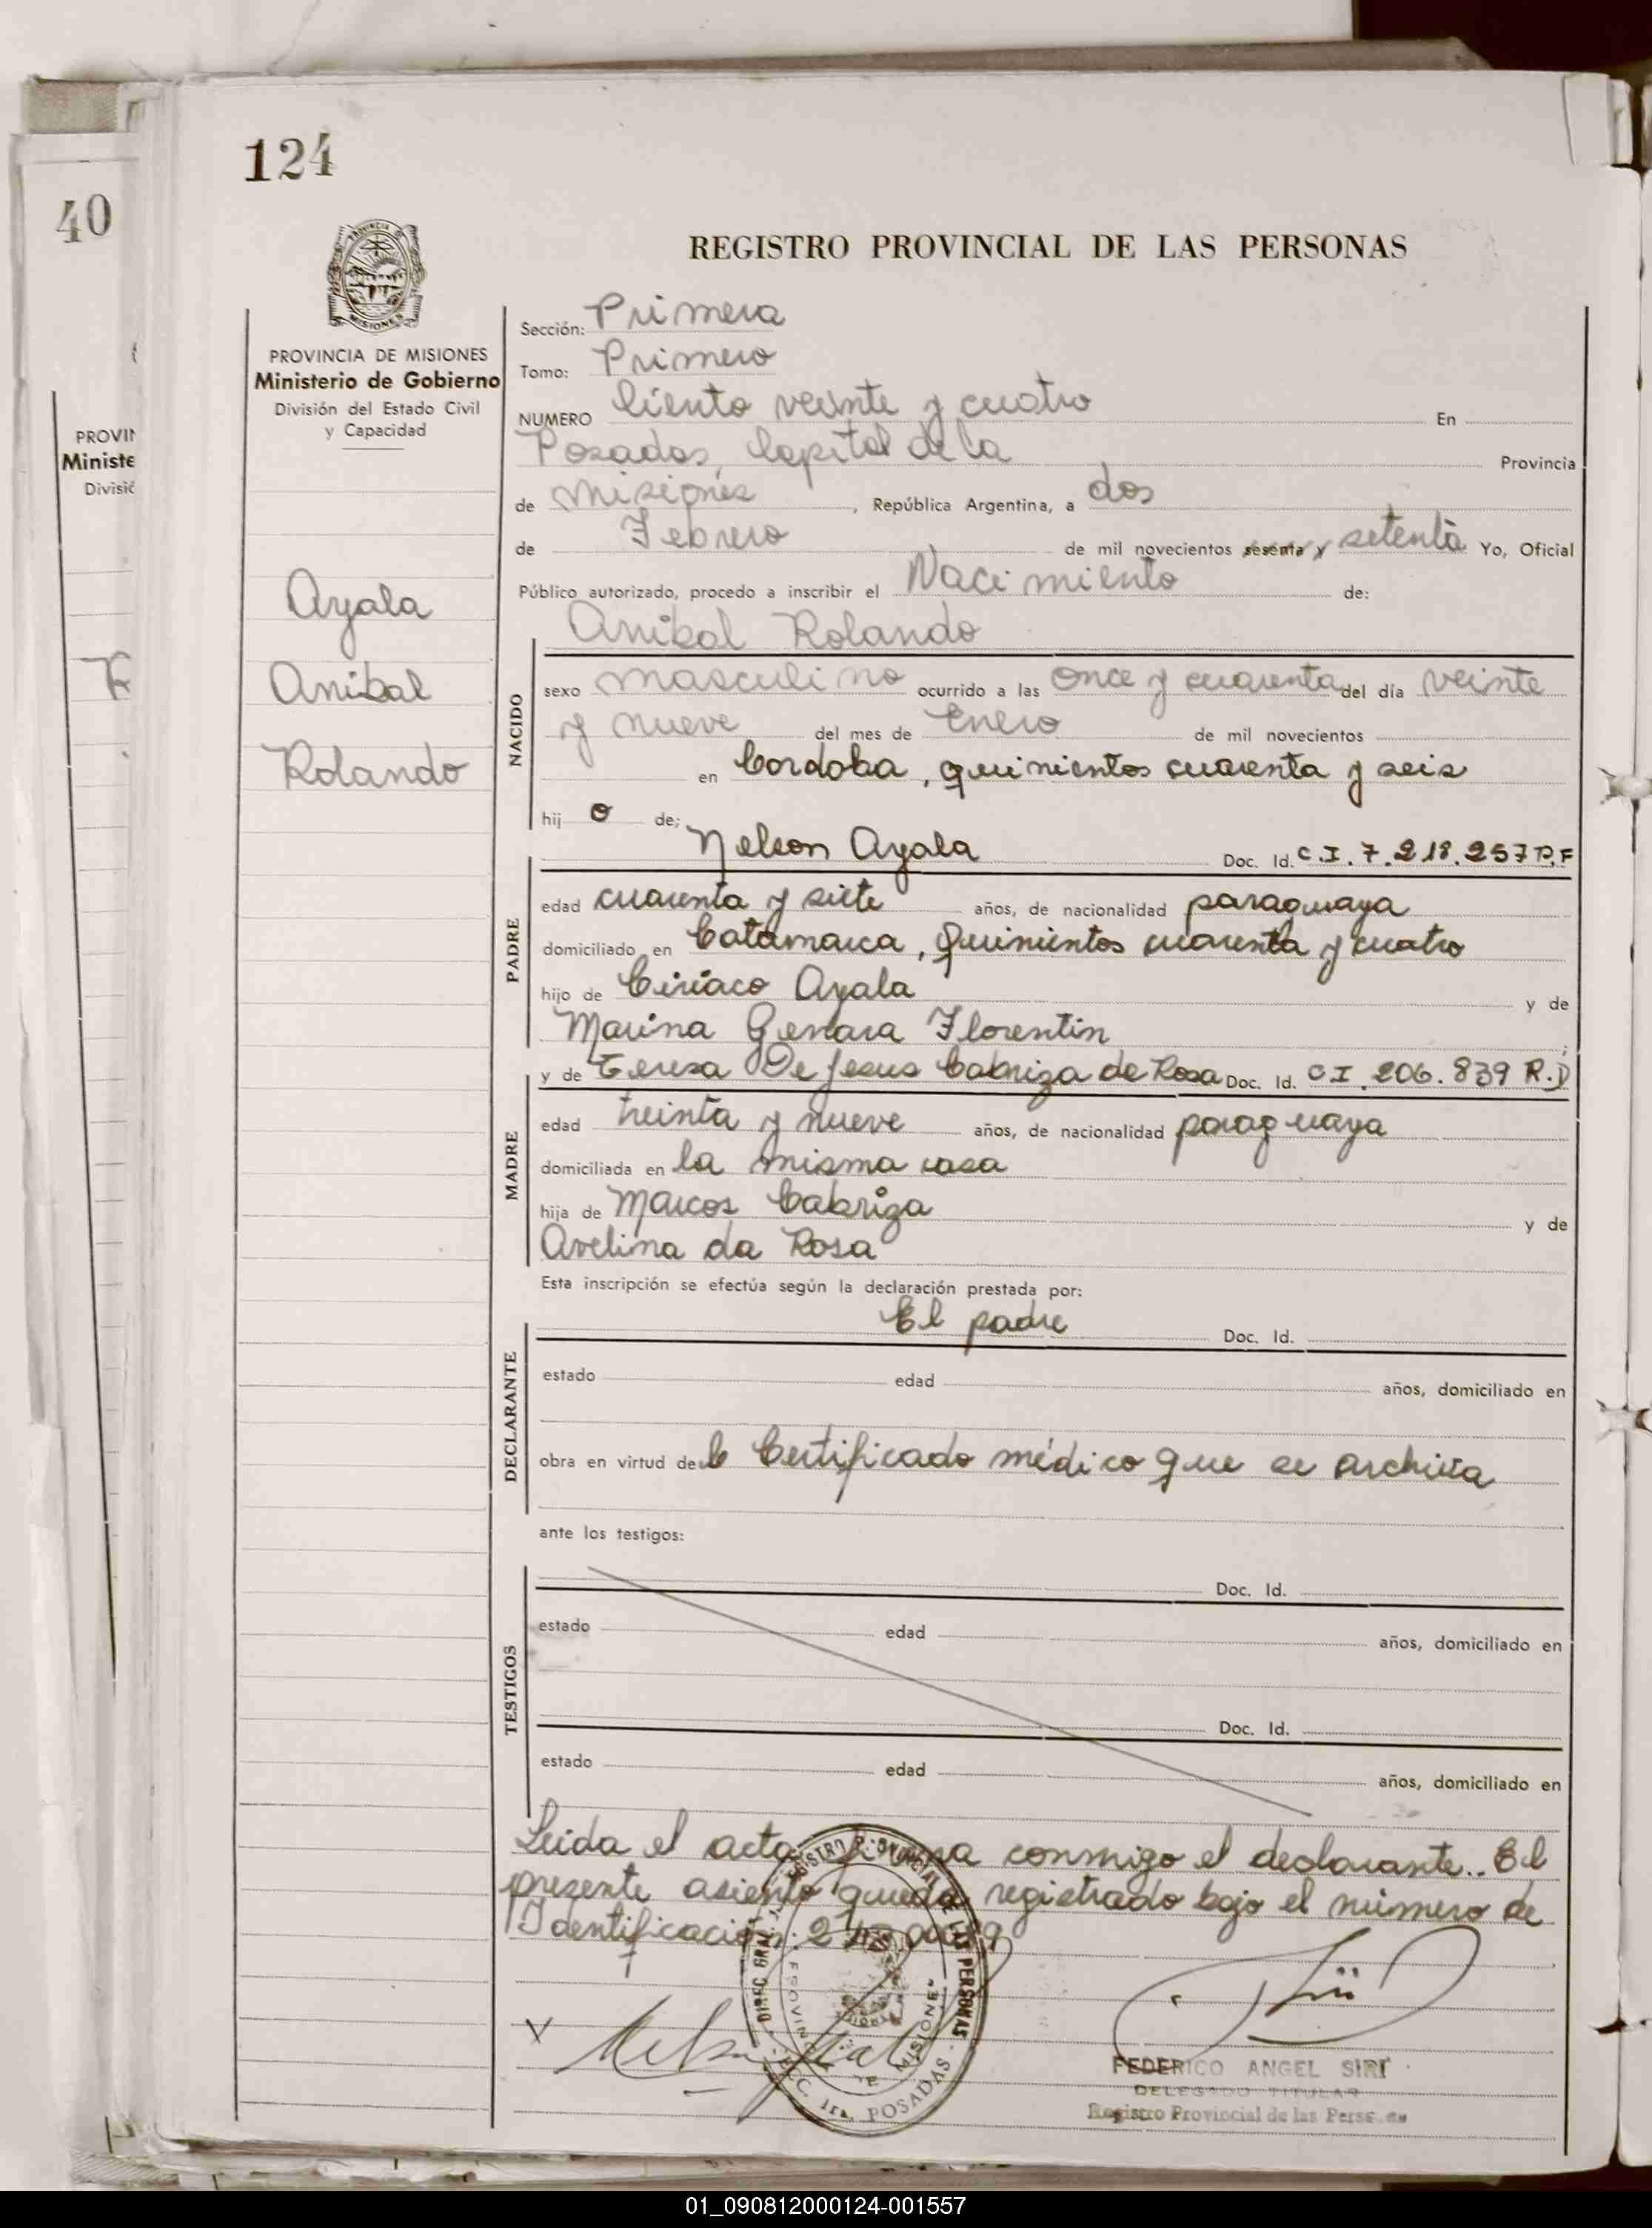 124
40
PROVINCIA DE MISIONES
Ministerio de Gobierno
División del Estado Civil
y Capacidad
PROVIN
Ministe
Divisió
Ayala
Anibal
Rolando
REGISTRO PROVINCIAL DE LAS PERSONAS
Sección: Primera
Tomo: Primero
NUMERO Ciento veinte y cuatro En
Posadas, Capital de la Provincia
de Misiones, República Argentina, a dos
de Febrero de mil novecientos sesenta y setenta Yo, Oficial
Público autorizado, procedo a inscribir el Nacimiento de:
Anibal Rolando
NACIDO
sexo masculino ocurrido a las once y cuarenta del día veinte
y nueve del mes de Enero de mil novecientos
en Cordoba, quinientos cuarenta y seis
hij o de;
Nelson Ayala Doc. Id. C.I. 7.218.257 P.F
PADRE
edad cuarenta y siete años, de nacionalidad paraguaya
domiciliado en Catamarca, quinientos cuarenta y cuatro
hijo de Ciriaco Ayala y de
Marina Genara Florentin ;
y de Teresa De Jesus Cabriza de Rosa Doc. Id. C I. 206.839 R.P
MADRE
edad treinta y nueve años, de nacionalidad paraguaya
domiciliada en la misma casa
hija de Marcos Cabriza y de
Avelina da Rosa
Esta inscripción se efectúa según la declaración prestada por:
El padre Doc. Id.
DECLARANTE
estado edad años, domiciliado en
obra en virtud del Certificado médico que se archiva
ante los testigos:
Doc. Id.
TESTIGOS
estado edad años, domiciliado en
Doc. Id.
estado edad años, domiciliado en
Leida el acta firma conmigo el declarante.. El
presente asiento queda registrado bajo el número de
Identificación:
DIREC GRAL REGISTRO PROVINCIAL DE LAS PERSONAS
PROVINCIA DE MISIONES
SEC. 1ra. POSADAS
FEDERICO ANGEL SIRI
DELEGADO TITULAR
Registro Provincial de las Personas
01_090812000124-001557